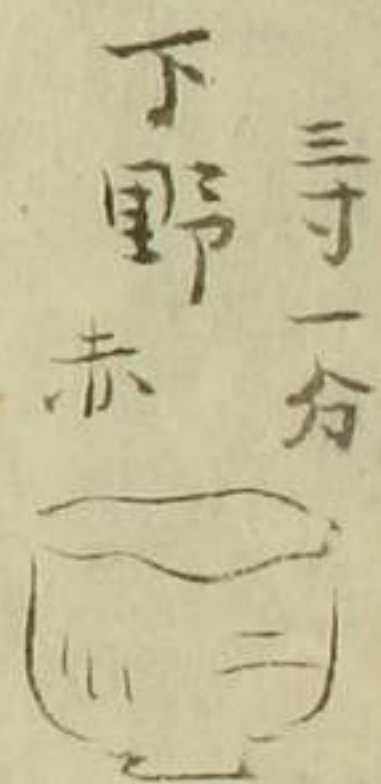 三寸一分
下野
赤